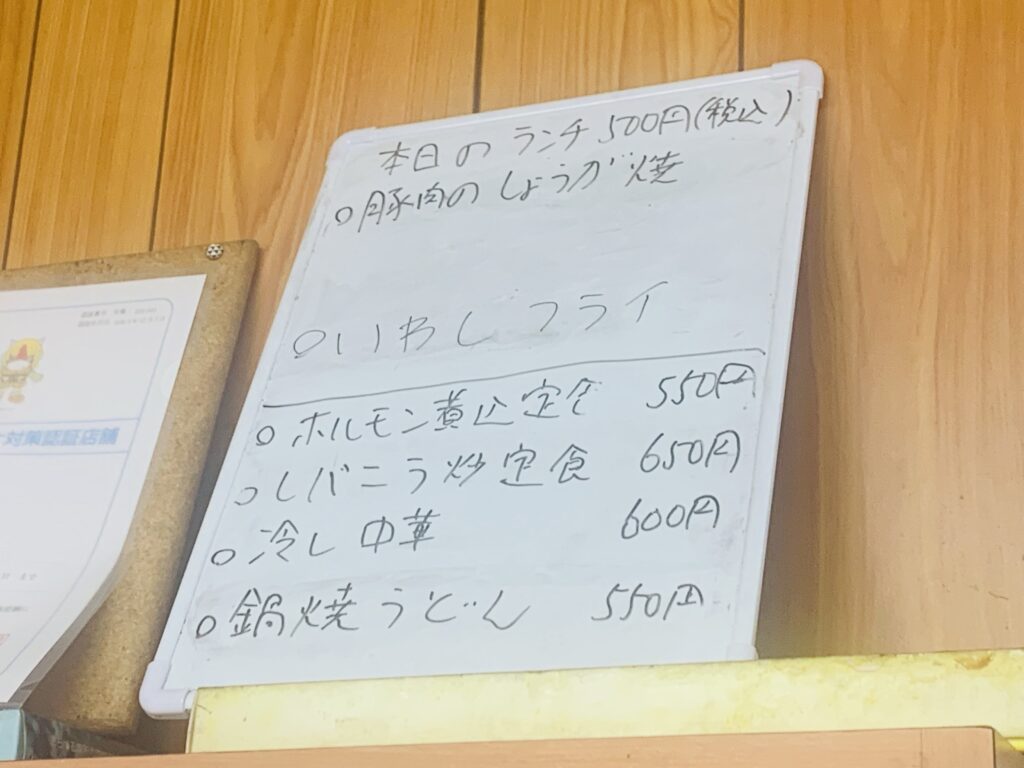 本日のランチ 500円(税込)
○豚肉のしょうが焼
○いわしフライ
○ホルモン煮込定食 550円
○レバニラ炒定食 650円
○冷し中華 600円
○鍋焼うどん 550円
対策認証店舗